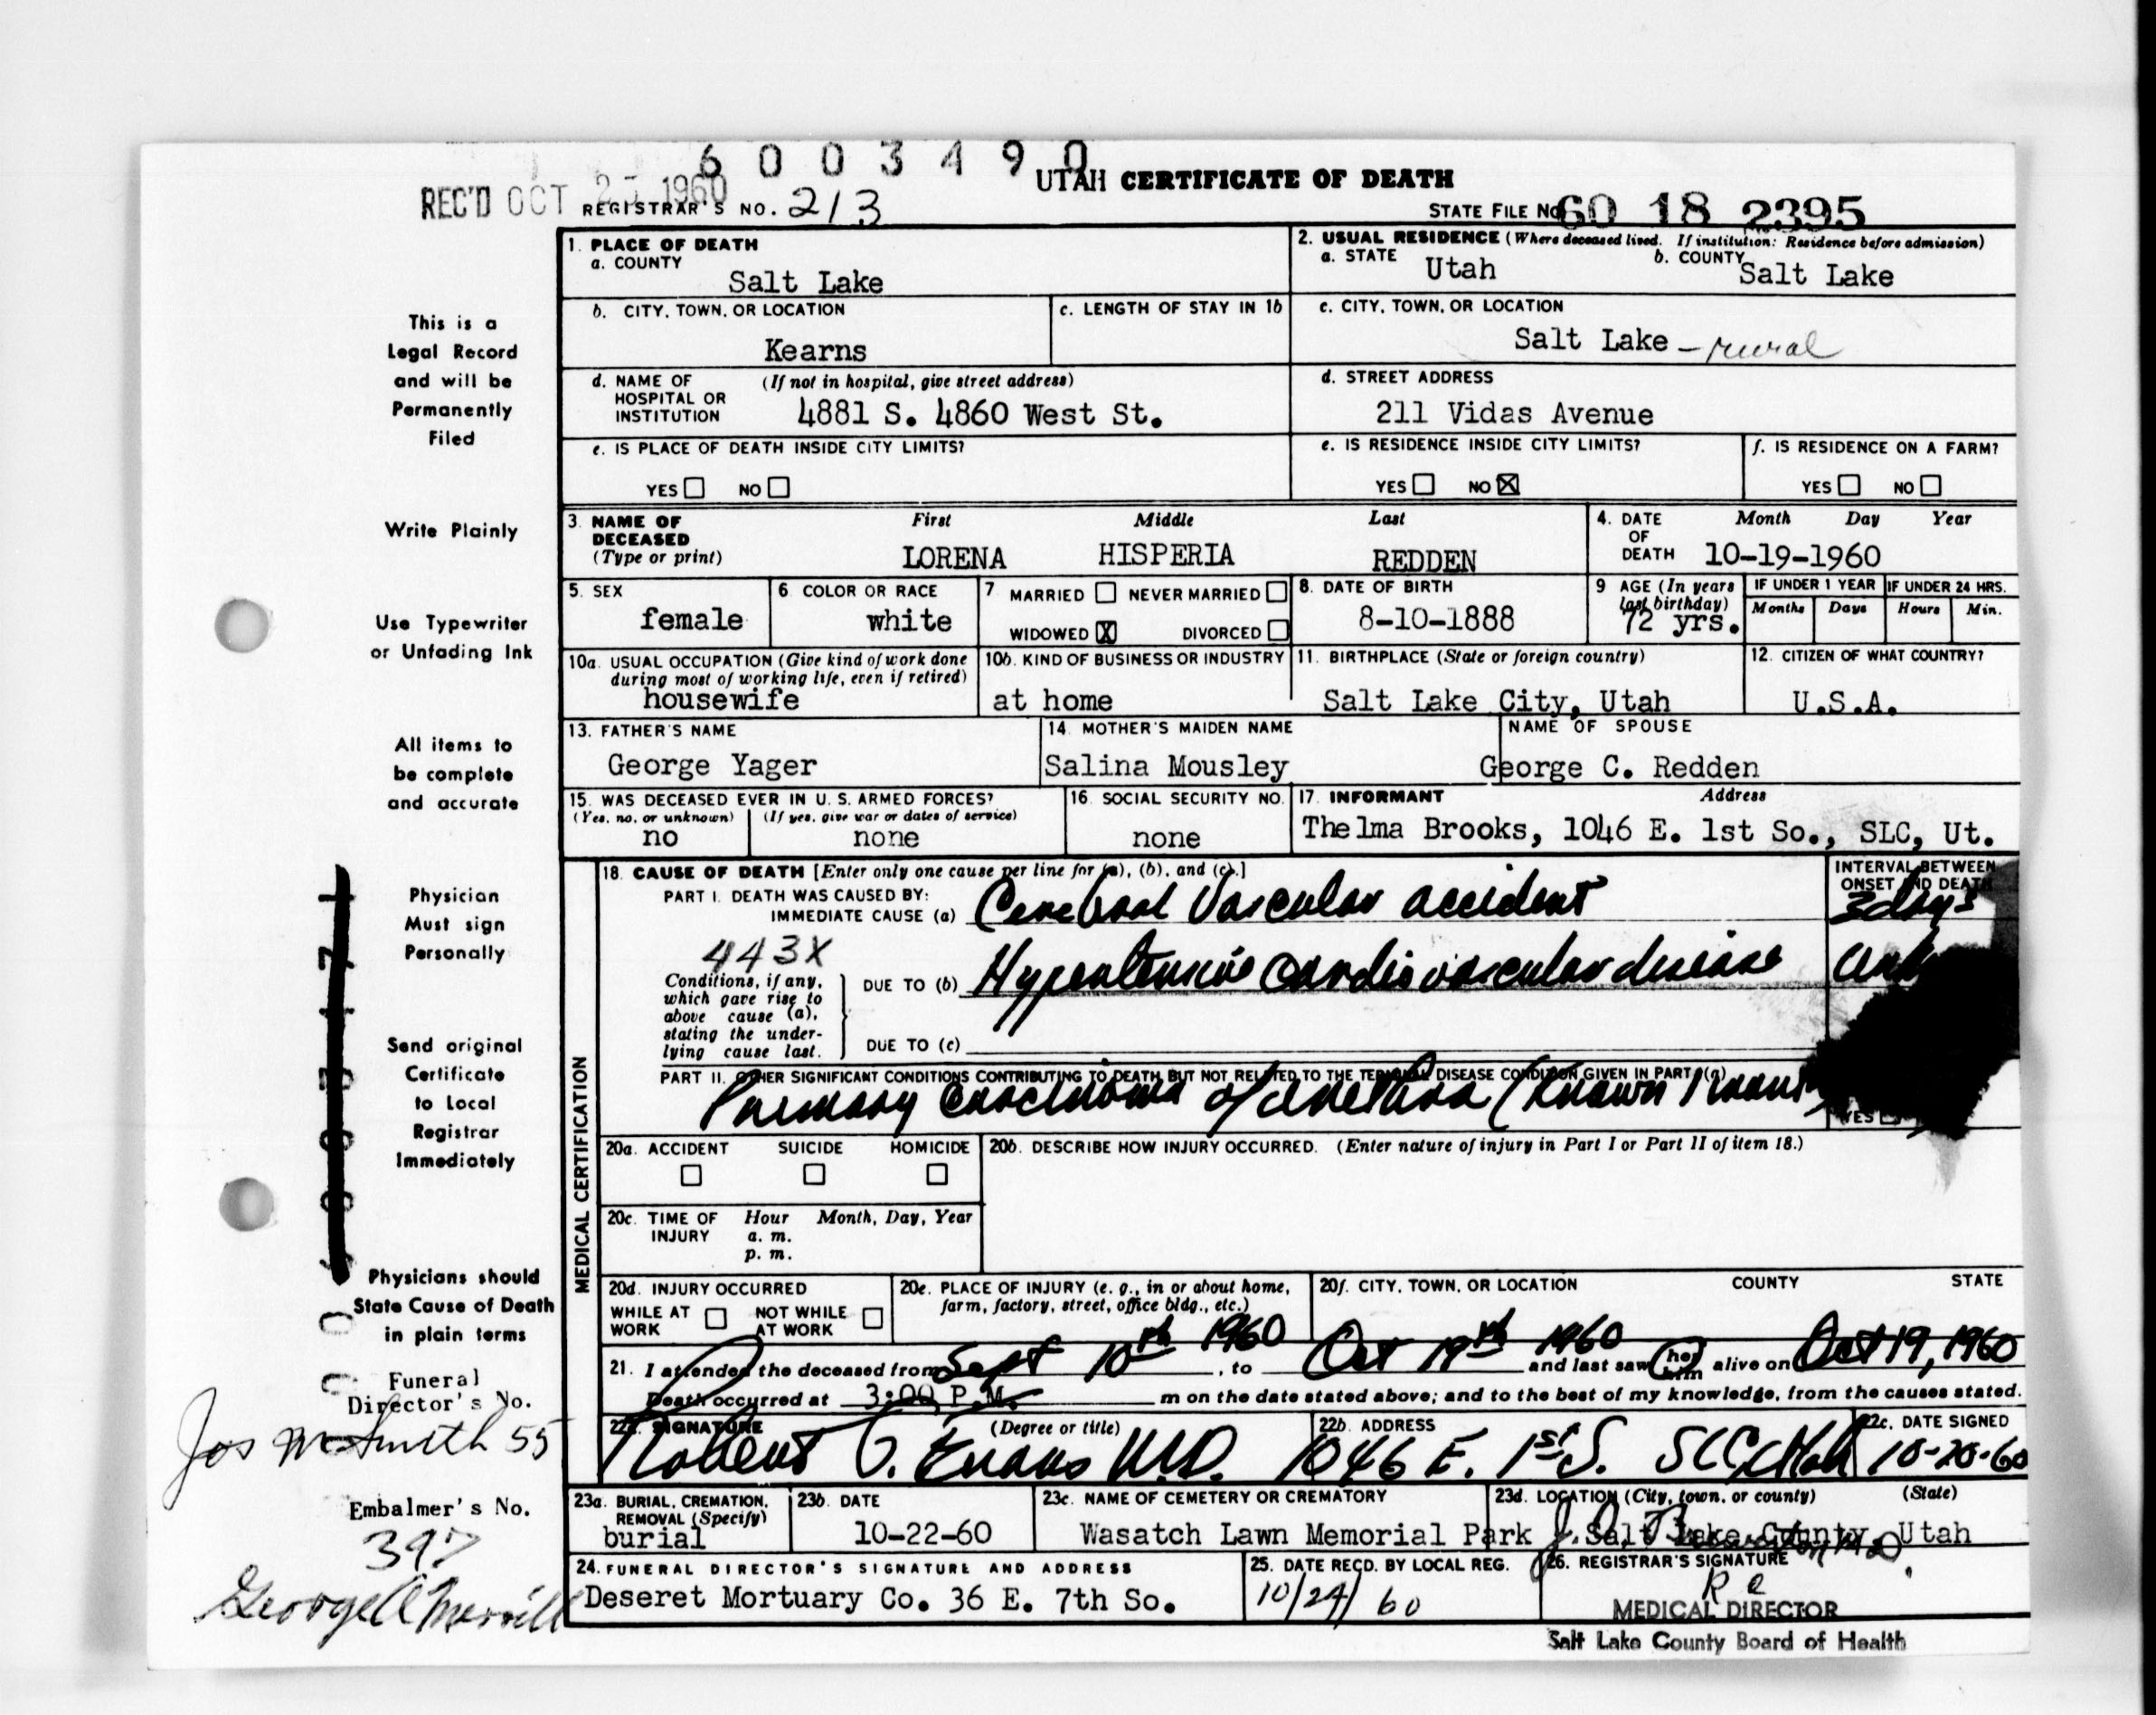 6 0 0 3 4 9 0
REC'D OCT 1960
UTAH CERTIFICATE OF DEATH
REGISTRAR'S NO. 213
STATE FILE NO. 60 18 2395
1. PLACE OF DEATH
a. COUNTY
Salt Lake
2. USUAL RESIDENCE (Where deceased lived. If institution: Residence before admission)
a. STATE Utah b. COUNTY Salt Lake
b. CITY, TOWN, OR LOCATION
Kearns
c. LENGTH OF STAY IN 1b
c. CITY, TOWN, OR LOCATION
Salt Lake - rural
d. NAME OF HOSPITAL OR INSTITUTION (If not in hospital, give street address)
4881 S. 4860 West St.
d. STREET ADDRESS
211 Vidas Avenue
e. IS PLACE OF DEATH INSIDE CITY LIMITS?
YES ☐ NO ☐
e. IS RESIDENCE INSIDE CITY LIMITS?
YES ☐ NO ☒
f. IS RESIDENCE ON A FARM?
YES ☐ NO ☐
3. NAME OF DECEASED (Type or print)
First Middle Last
LORENA HISPERIA REDDEN
4. DATE OF DEATH Month Day Year
10-19-1960
5. SEX
female
6. COLOR OR RACE
white
7. MARRIED ☐ NEVER MARRIED ☐
WIDOWED ☒ DIVORCED ☐
8. DATE OF BIRTH
8-10-1888
9. AGE (In years last birthday)
72 yrs.
IF UNDER 1 YEAR
Months Days
IF UNDER 24 HRS.
Hours Min.
10a. USUAL OCCUPATION (Give kind of work done during most of working life, even if retired)
housewife
10b. KIND OF BUSINESS OR INDUSTRY
at home
11. BIRTHPLACE (State or foreign country)
Salt Lake City, Utah
12. CITIZEN OF WHAT COUNTRY?
U.S.A.
13. FATHER'S NAME
George Yager
14. MOTHER'S MAIDEN NAME
Salina Mousley
NAME OF SPOUSE
George C. Redden
15. WAS DECEASED EVER IN U. S. ARMED FORCES?
(Yes, no, or unknown) (If yes, give war or dates of service)
no none
16. SOCIAL SECURITY NO.
none
17. INFORMANT Address
Thelma Brooks, 1046 E. 1st So., SLC, Ut.
MEDICAL CERTIFICATION
18. CAUSE OF DEATH [Enter only one cause per line for (a), (b), and (c).]
PART I. DEATH WAS CAUSED BY:
IMMEDIATE CAUSE (a) Cerebral Vascular accident
INTERVAL BETWEEN ONSET AND DEATH
3 days
443X
Conditions, if any, which gave rise to above cause (a), stating the underlying cause last.
DUE TO (b) Hypertensive cardiovascular disease
DUE TO (c)
PART II. OTHER SIGNIFICANT CONDITIONS CONTRIBUTING TO DEATH BUT NOT RELATED TO THE TERMINAL DISEASE CONDITION GIVEN IN PART I(a)
Primary Carcinoma of urethra (Known 1
YES
20a. ACCIDENT SUICIDE HOMICIDE
☐ ☐ ☐
20b. DESCRIBE HOW INJURY OCCURRED. (Enter nature of injury in Part I or Part II of item 18.)
20c. TIME OF INJURY Hour Month, Day, Year
a. m.
p. m.
20d. INJURY OCCURRED
WHILE AT WORK ☐ NOT WHILE AT WORK ☐
20e. PLACE OF INJURY (e. g., in or about home, farm, factory, street, office bldg., etc.)
20f. CITY, TOWN, OR LOCATION COUNTY STATE
21. I attended the deceased from Sept 10th 1960, to Oct 19th 1960 and last saw her him alive on Oct 19, 1960
Death occurred at 3:00 P.M. m on the date stated above; and to the best of my knowledge, from the causes stated.
22a. SIGNATURE (Degree or title)
Robert O. Evans M.D.
22b. ADDRESS
1046 E. 1st S. SLC, Utah
22c. DATE SIGNED
10-20-60
23a. BURIAL, CREMATION, REMOVAL (Specify)
burial
23b. DATE
10-22-60
23c. NAME OF CEMETERY OR CREMATORY
Wasatch Lawn Memorial Park
23d. LOCATION (City, town, or county) (State)
Salt Lake County, Utah
24. FUNERAL DIRECTOR'S SIGNATURE AND ADDRESS
Deseret Mortuary Co. 36 E. 7th So.
25. DATE RECD. BY LOCAL REG.
10/24/60
26. REGISTRAR'S SIGNATURE
MEDICAL DIRECTOR
Salt Lake County Board of Health
This is a
Legal Record
and will be
Permanently
Filed
Write Plainly
Use Typewriter
or Unfading Ink
All items to
be complete
and accurate
Physician
Must sign
Personally
Send original
Certificate
to Local
Registrar
Immediately
Physicians should
State Cause of Death
in plain terms
Funeral
Director's No.
Jos W Smith 55
Embalmer's No.
397
George A Merrill